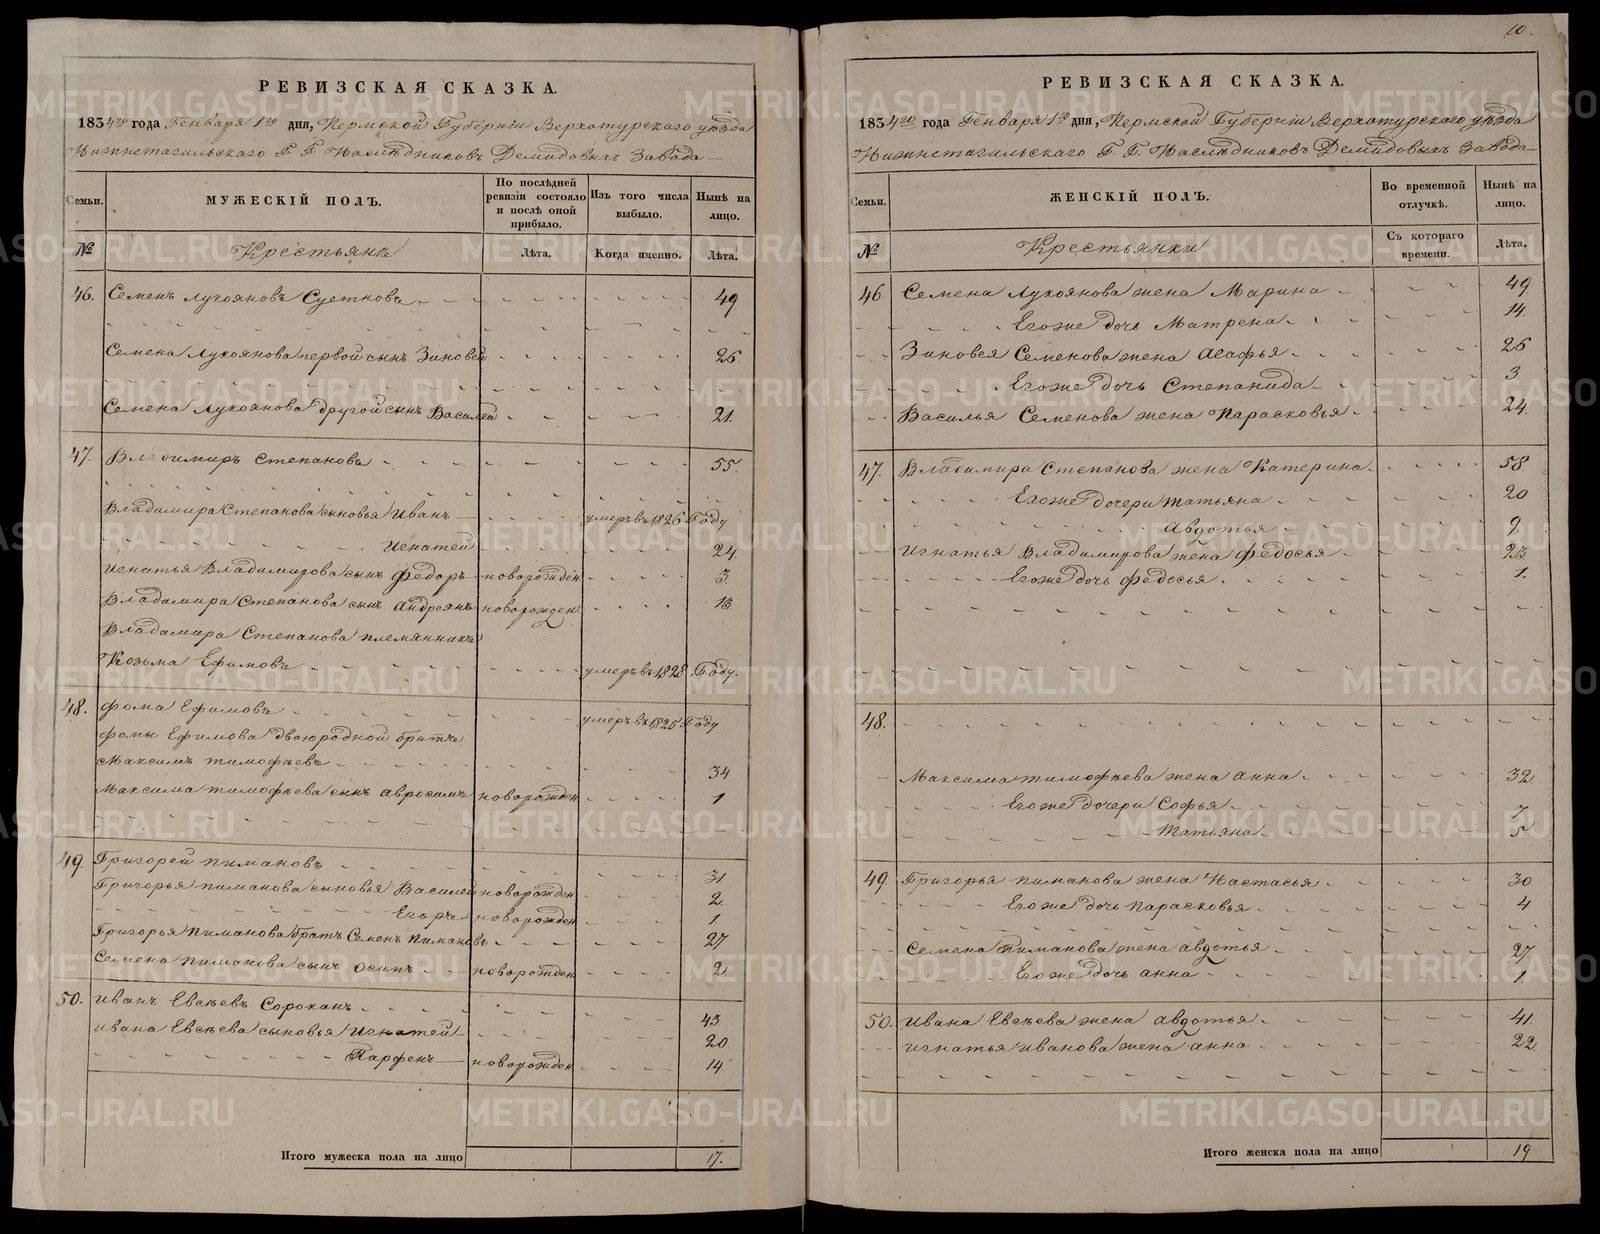 10.
РЕВИЗСКАЯ СКАЗКА.
1834го года Генваря 1го дня, Пермской Губерніи Верхотурскаго уѣзда
Нижнетагильскаго Г. Г. Наслѣдниковъ Демидовыхъ Завода
Семьи.
МУЖЕСКІЙ ПОЛЪ.
По послѣдней ревизіи состояло и послѣ оной прибыло.
Изъ того числа выбыло.
Нынѣ на лицо.
№
Крестьянъ
Лѣта.
Когда именно.
Лѣта.
46. Семенъ Лукояновъ Суетновъ 49
Семена Лукоянова первой сынъ Зиновей 26
Семена Лукоянова другой сынъ Василей 21.
47. Владимиръ Степановъ 55.
Владимира Степанова сыновья Иванъ умеръ въ 1826 Году
Игнатей 24.
Игнатья Владимирова сынъ Федоръ новорожден 3
Владимира Степанова сынъ Андреянъ новорожден 13
Владимира Степанова племянникъ
Козьма Ефимовъ умеръ въ 1828 Году.
48. Фома Ефимовъ умеръ въ 1825 Году
Фомы Ефимова двоюродной братъ
Максимъ Тимофѣевъ 34
Максима Тимофѣева сынъ Авросимъ новорожден 1
49. Григорей Пимановъ 31
Григорья Пиманова сыновья Василей новорожден 2
Егоръ новорожден 1
Григорья Пиманова братъ Семенъ Пимановъ 27
Семена Пиманова сынъ Осипъ новорожден 2
50. Иванъ Евсѣевъ Сорокинъ 43
Ивана Евсѣева сыновья Игнатей 20
Парфенъ новорожден 14
Итого мужеска пола на лицо 17.
РЕВИЗСКАЯ СКАЗКА.
1834го года Генваря 1го дня, Пермской Губерніи Верхотурскаго уѣзда
Нижнетагильскаго Г. Г. Наслѣдниковъ Демидовыхъ Завода
Семьи.
ЖЕНСКІЙ ПОЛЪ.
Во временной отлучкѣ.
Нынѣ на лицо.
№
Крестьянки
Съ котораго времени.
Лѣта.
46 Семена Лукоянова жена Марина 49
Егоже дочь Матрена 14.
Зиновея Семенова жена Агафья 26
Егоже дочь Степанида 3
Василья Семенова жена Парасковья 24.
47. Владимира Степанова жена Катерина 58
Егоже дочери Татьяна 20
Авдотья 9
Игнатья Владимирова жена Федосья 23
Егоже дочь Федосья 1.
48.
Максима Тимофѣева жена Анна 32
Егоже дочери Софья 7
Татьяна 5
49 Григорья Пиманова жена Настасья 30
Егоже дочь Парасковья 4
Семена Пиманова жена Авдотья 27
Егоже дочь Анна 1
50. Ивана Евсѣева жена Авдотья 41
Игнатья Иванова жена Анна 22
Итого женска пола на лицо 19
METRIKI.GASO-URAL.RU